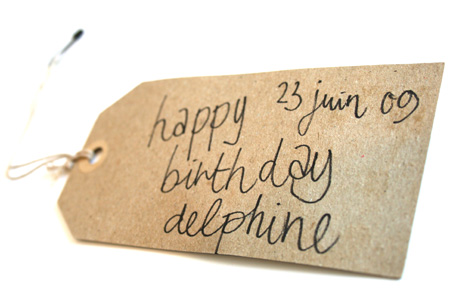 happy 23 juin 09
birthday
delphine